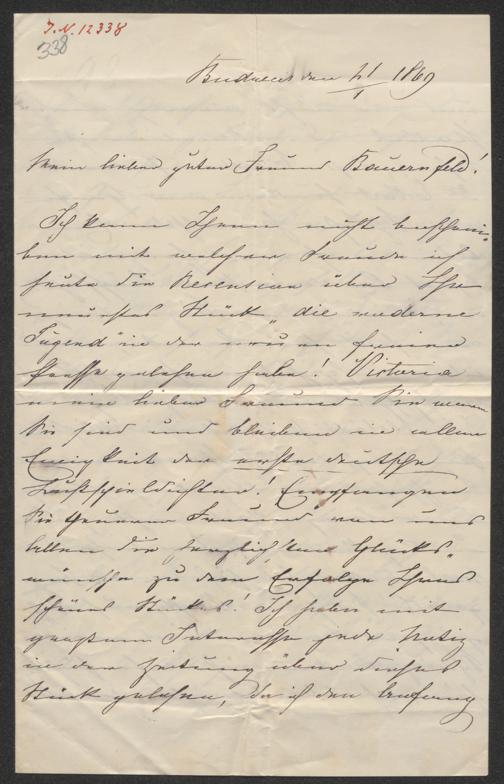 J.N. 12338
338
Budapest den 21/1 1869
Mein lieber guter Freund Bauernfeld!
Ich kann Ihnen nicht beschrei-
ben mit welcher Freude ich
heute die Recension über Ihr
neuestes Stück „die moderne
Jugend" in der neuen freien
Presse gelesen habe! Victoria
mein lieber Freund Sie waren
Sie sind und bleiben in alle
Ewigkeit der erste deutsche
Lustspieldichter! Empfangen
Sie theurer Freund von uns
allen die herzlichsten Glücks-
wünsche zu dem Erfolge Ihres
schönen Stückes! Ich habe mit
großem Interesse jede Notiz
in der Zeitung über dieses
Stück gelesen, da ich den Anfang